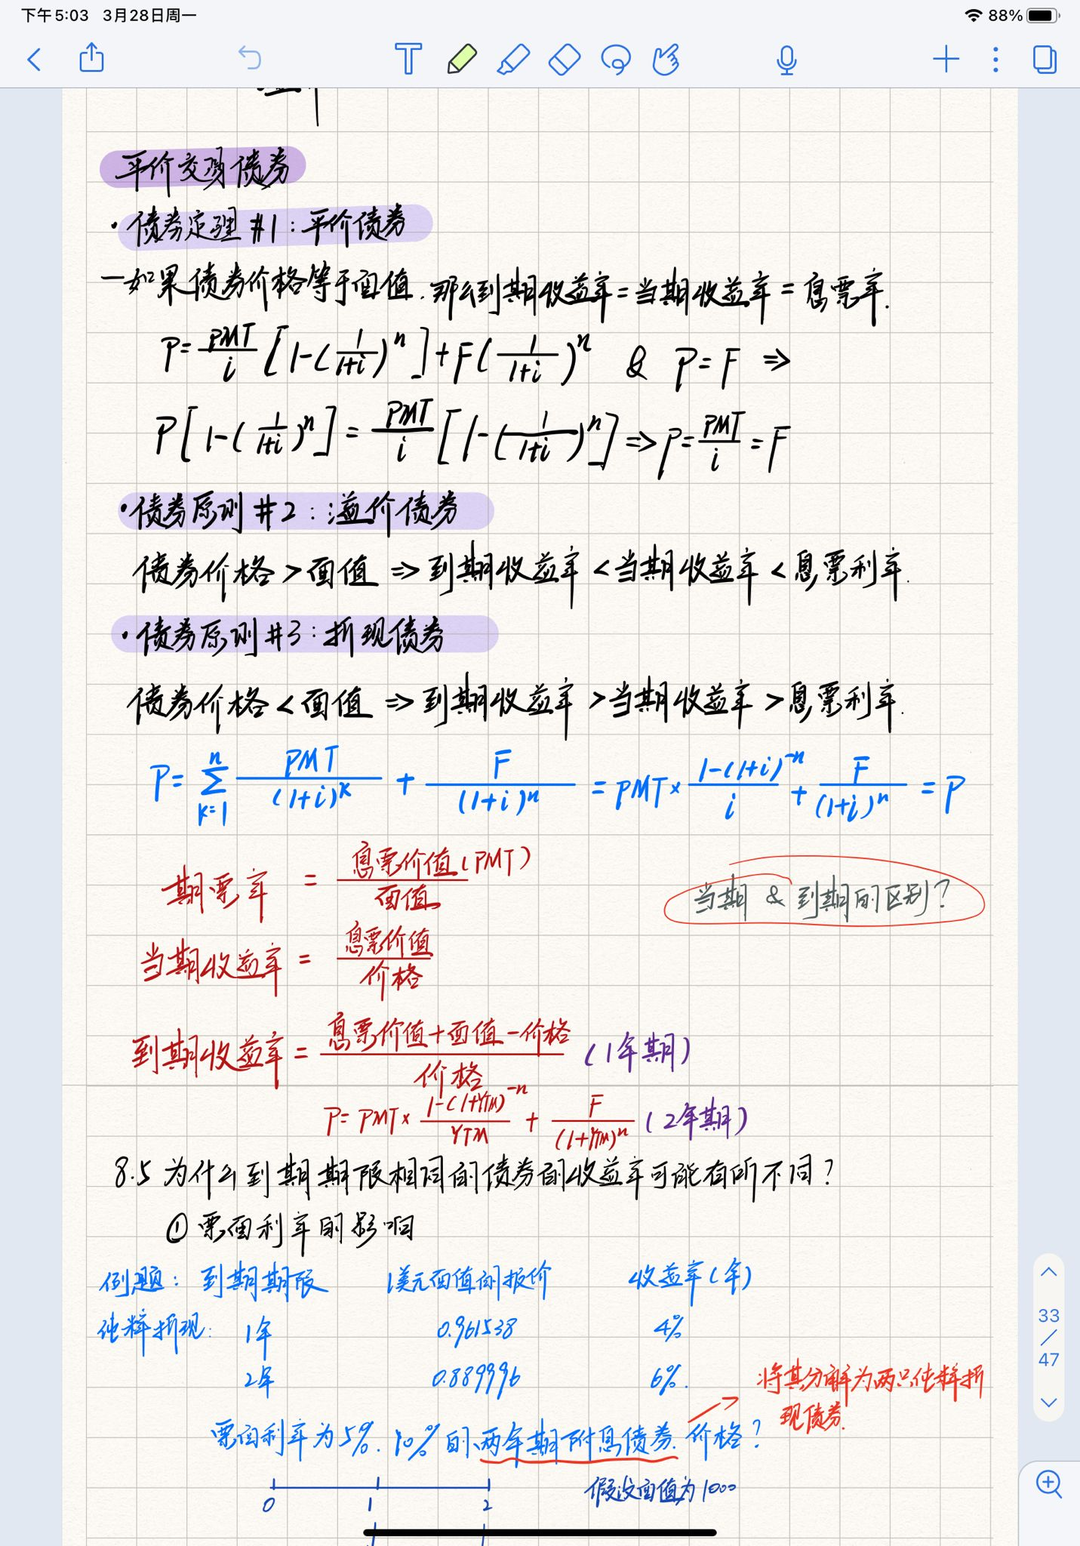 下午5:03 3月28日周一 88%
平价交易债券
·债券定理#1:平价债券
一如果债券价格等于面值,那么到期收益率=当期收益率=息票率.
P=PMT/i[1-(1/1+i)^n]+F(1/1+i)^n & P=F ⇒
P[1-(1/1+i)^n]=PMT/i[1-(1/1+i)^n]⇒P=PMT/i=F
·债券原则#2:溢价债券
债券价格>面值⇒到期收益率<当期收益率<息票利率.
·债券原则#3:折现债券
债券价格<面值⇒到期收益率>当期收益率>息票利率.
P=∑_{k=1}^n PMT/(1+i)^k + F/(1+i)^n = PMT×1-(1+i)^{-n}/i + F/(1+i)^n = P
期票率=息票价值(PMT)/面值
当期&到期的区别?
当期收益率=息票价值/价格
到期收益率=息票价值+面值-价格/价格(1年期)
P=PMT×1-(1+YTM)^{-n}/YTM + F/(1+YTM)^n(2年期)
8.5为什么到期期限相同的债券的收益率可能有所不同?
①票面利率的影响
例题:到期期限 1美元面值的报价 收益率(年)
纯粹折现:1年 0.961538 4%
2年 0.889996 6%.
将其分解为两只纯粹折
现债券.
票面利率为5%.10%的两年期附息债券.价格?
假设面值为1000
0 1 2
33
/
47